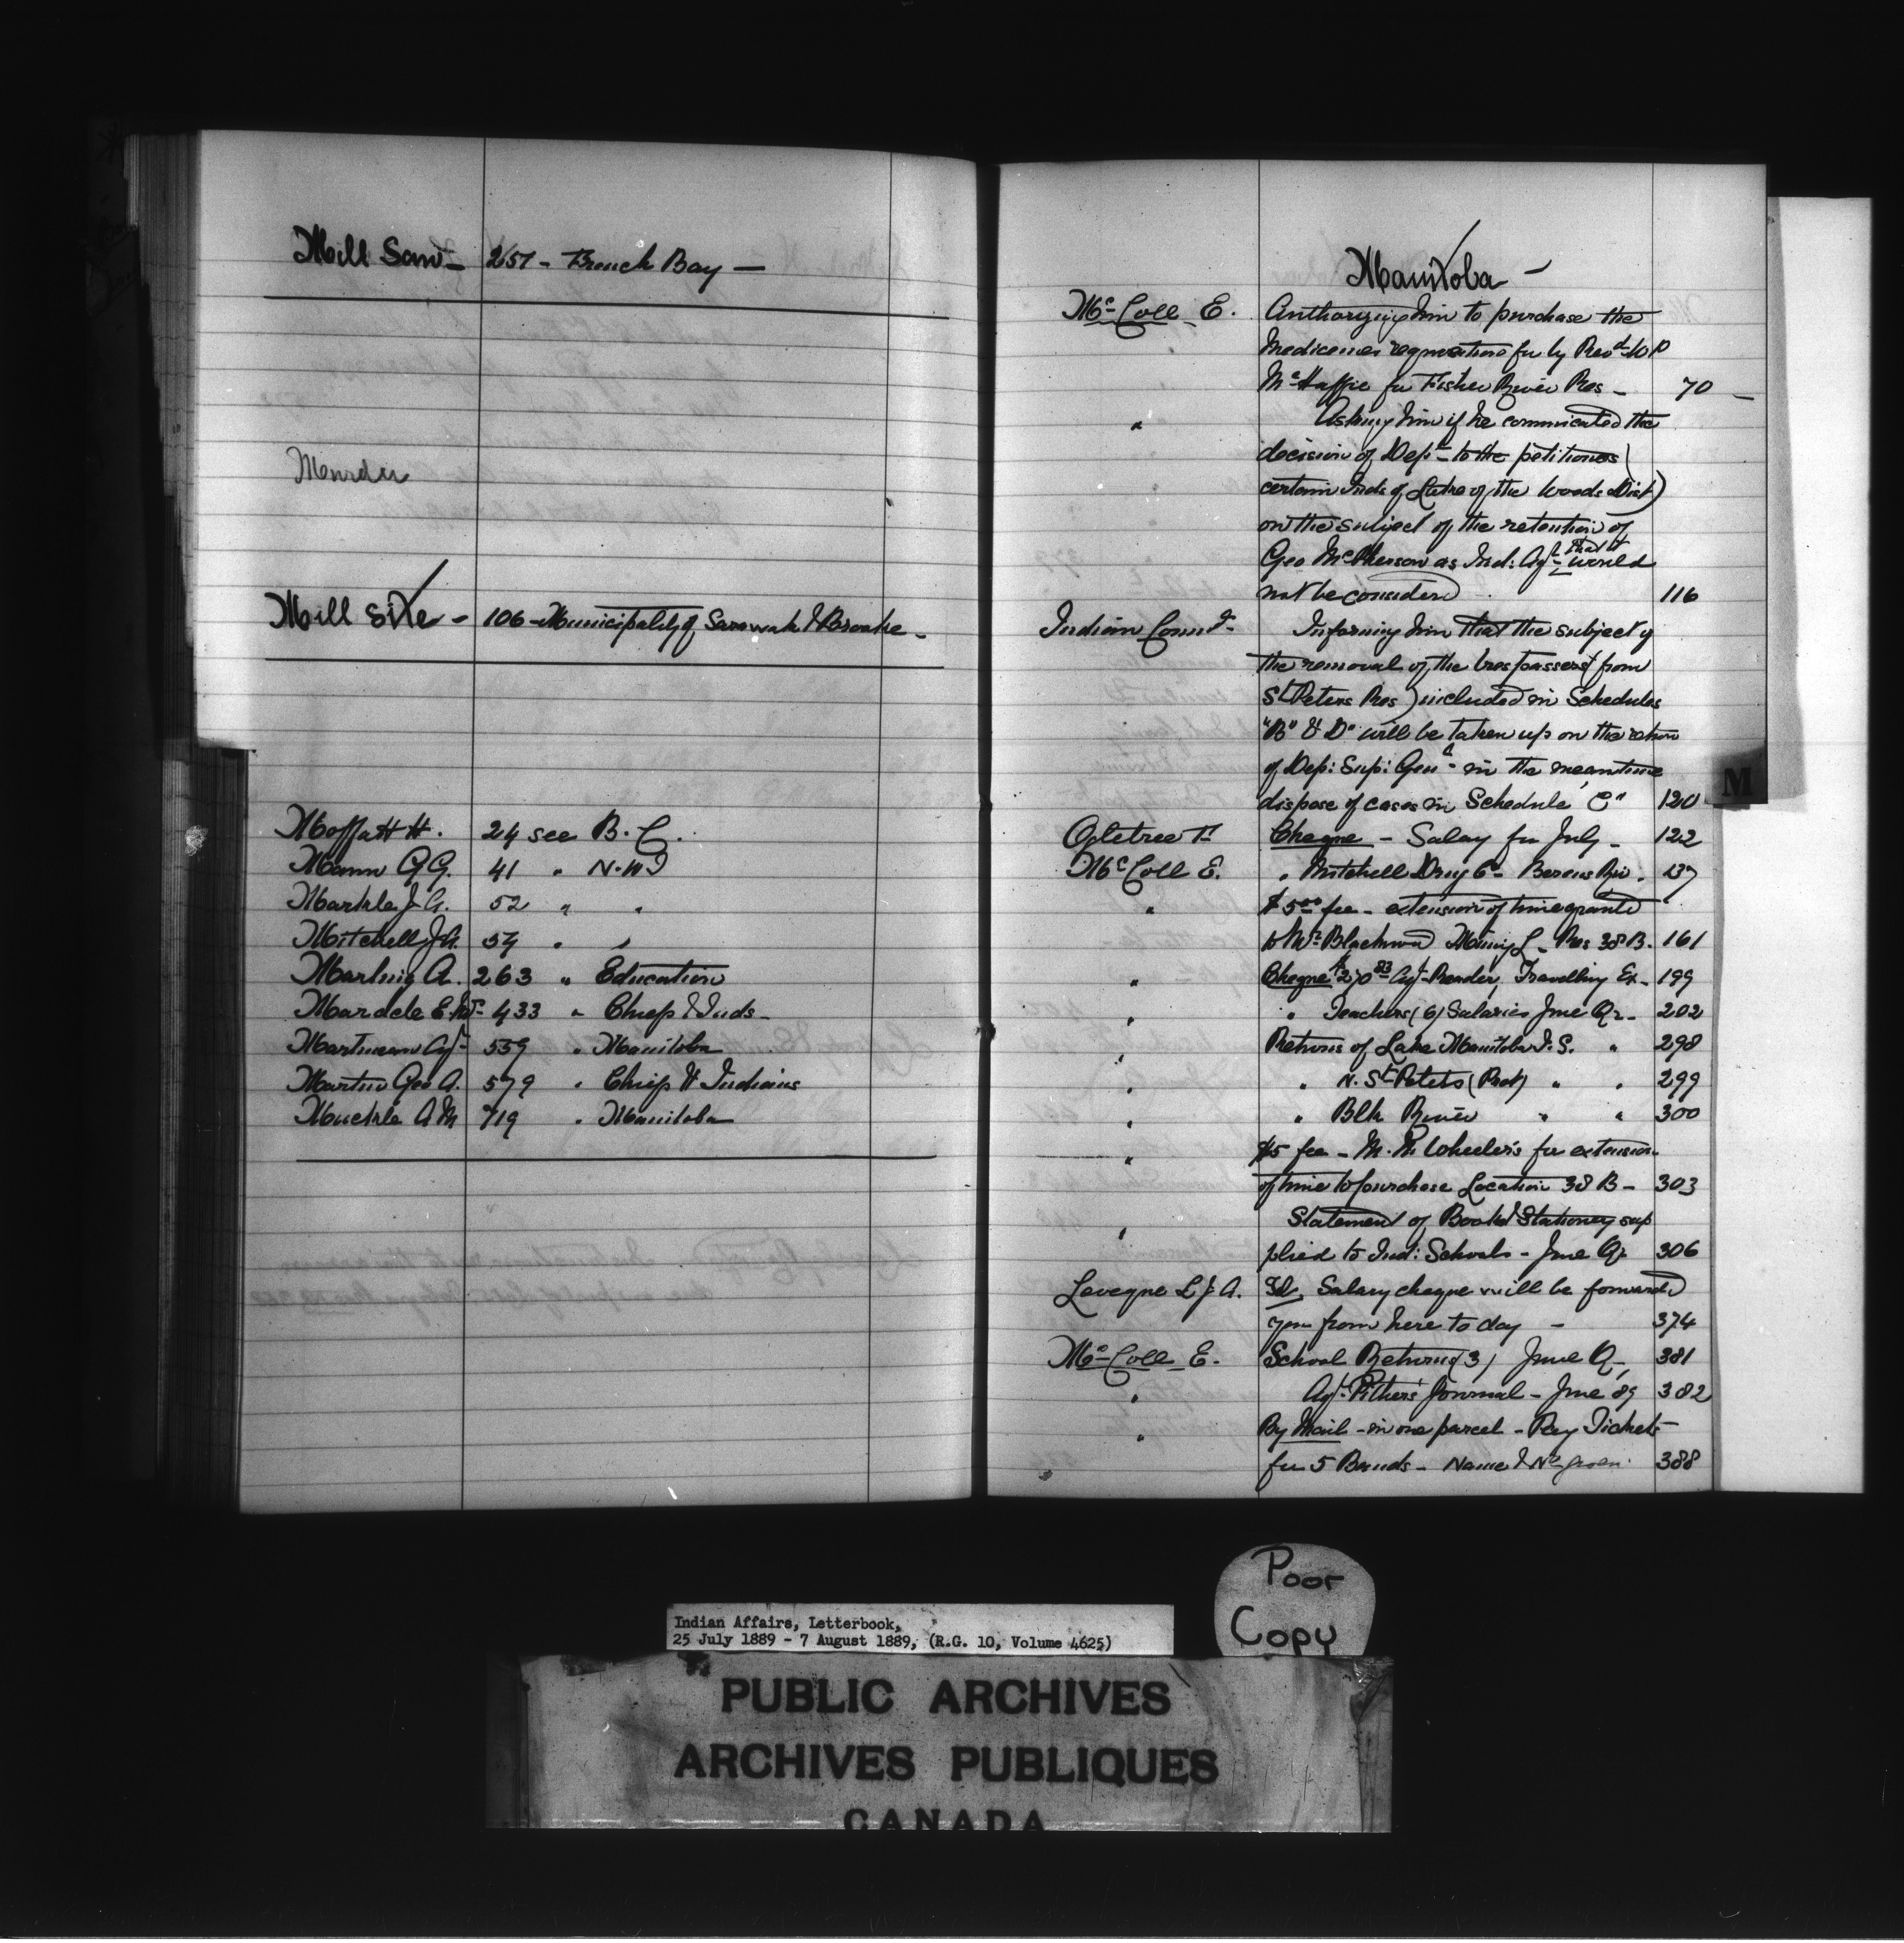 Mill Saw - 257 - French Bay -
Mill Site - 106 - Municipality of Sarawak & Brooke -
Moffatt H. 24 see B.C.
Mann G G. 41 " N.W.T
Markle J. A. 52 " "
Mitchell J A. 54 " "
Martini A. 263 " Education
433 " Chiefs & Inds -
Martineau Agt 559 " Manitoba
Martin Geo A. 579 " Chiefs & Indians
Muckle A M 719 " Manitoba
Manitoba -
Mc Coll E. Authorizing him to purchase the
Medicines for by Revd
for Fisher River Res - 70 -
" Asking him if he communicated the
decision of Dept to the petitioners
certain Inds of Lake of the Woods Dist)
on the subject of the retention of
Geo McPherson as Ind: Agt that it would
not be considered 116
Indian Commr - Informing him that the subject of
the removal of the trespassers (from
St Peters Res) included in Schedules
"B" & D" will be taken up on the return
of Dep: Sup: Genl - in the meantime
dispose of cases in Schedule "C" 120
Ogletree F Cheque - Salary for July - 122
Mc Coll E. " Mitchell Drug Co - Berens Riv. 137
" $5 00 fee - extension of time granted
to Blackwood Mining L - Res 38 B. 161
" Cheque $270 83 Agt Reader, Travelling Ex - 199
" " Teachers (6) Salaries June Qr - 202
" Returns of Lake Manitoba I. S. " 298
" " N. St Peters (Prot) " " 299
" " Blk River " " 300
" $5 fee - M. Wheeler's for extension
of time to purchase Location 38 B - 303
" Statement of Books & Stationery sup
plied to Ind: Schools - June Qr 306
Leveque L J A. Salary cheque will be forwarded
you from here to day - 374
Mc Coll E. School Returns (3) June Q - 381
" Agt Pither's Journal - June 89 382
" By Mail - in one parcel - Pay Tickets
for 5 Bands - Name & No given 388
M
Poor
Copy
Indian Affairs, Letterbook,
25 July 1889 - 7 August 1889, (R.G. 10, Volume 4625)
PUBLIC ARCHIVES
ARCHIVES PUBLIQUES
CANADA